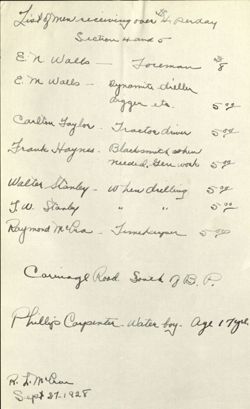 List of Men receiving over $4 00 per day
Section 4 and 5
E. N. Walls — Foreman $8
E. M. Walls - Dynamite driller
digger etc. 5 00
Carlton Taylor - Tractor driver 5 00
Frank Haynes - Blacksmith when
needed, Gen work 5 00
Walter Stanley - When drilling 5 00
J. W. Stanley " " 5 00
Raymond McCrea - Timekeeper 5 00
Carriage Road South of B. P.
Phillips Carpenter - Water boy - Age 17 yrs
Sept 27-1928